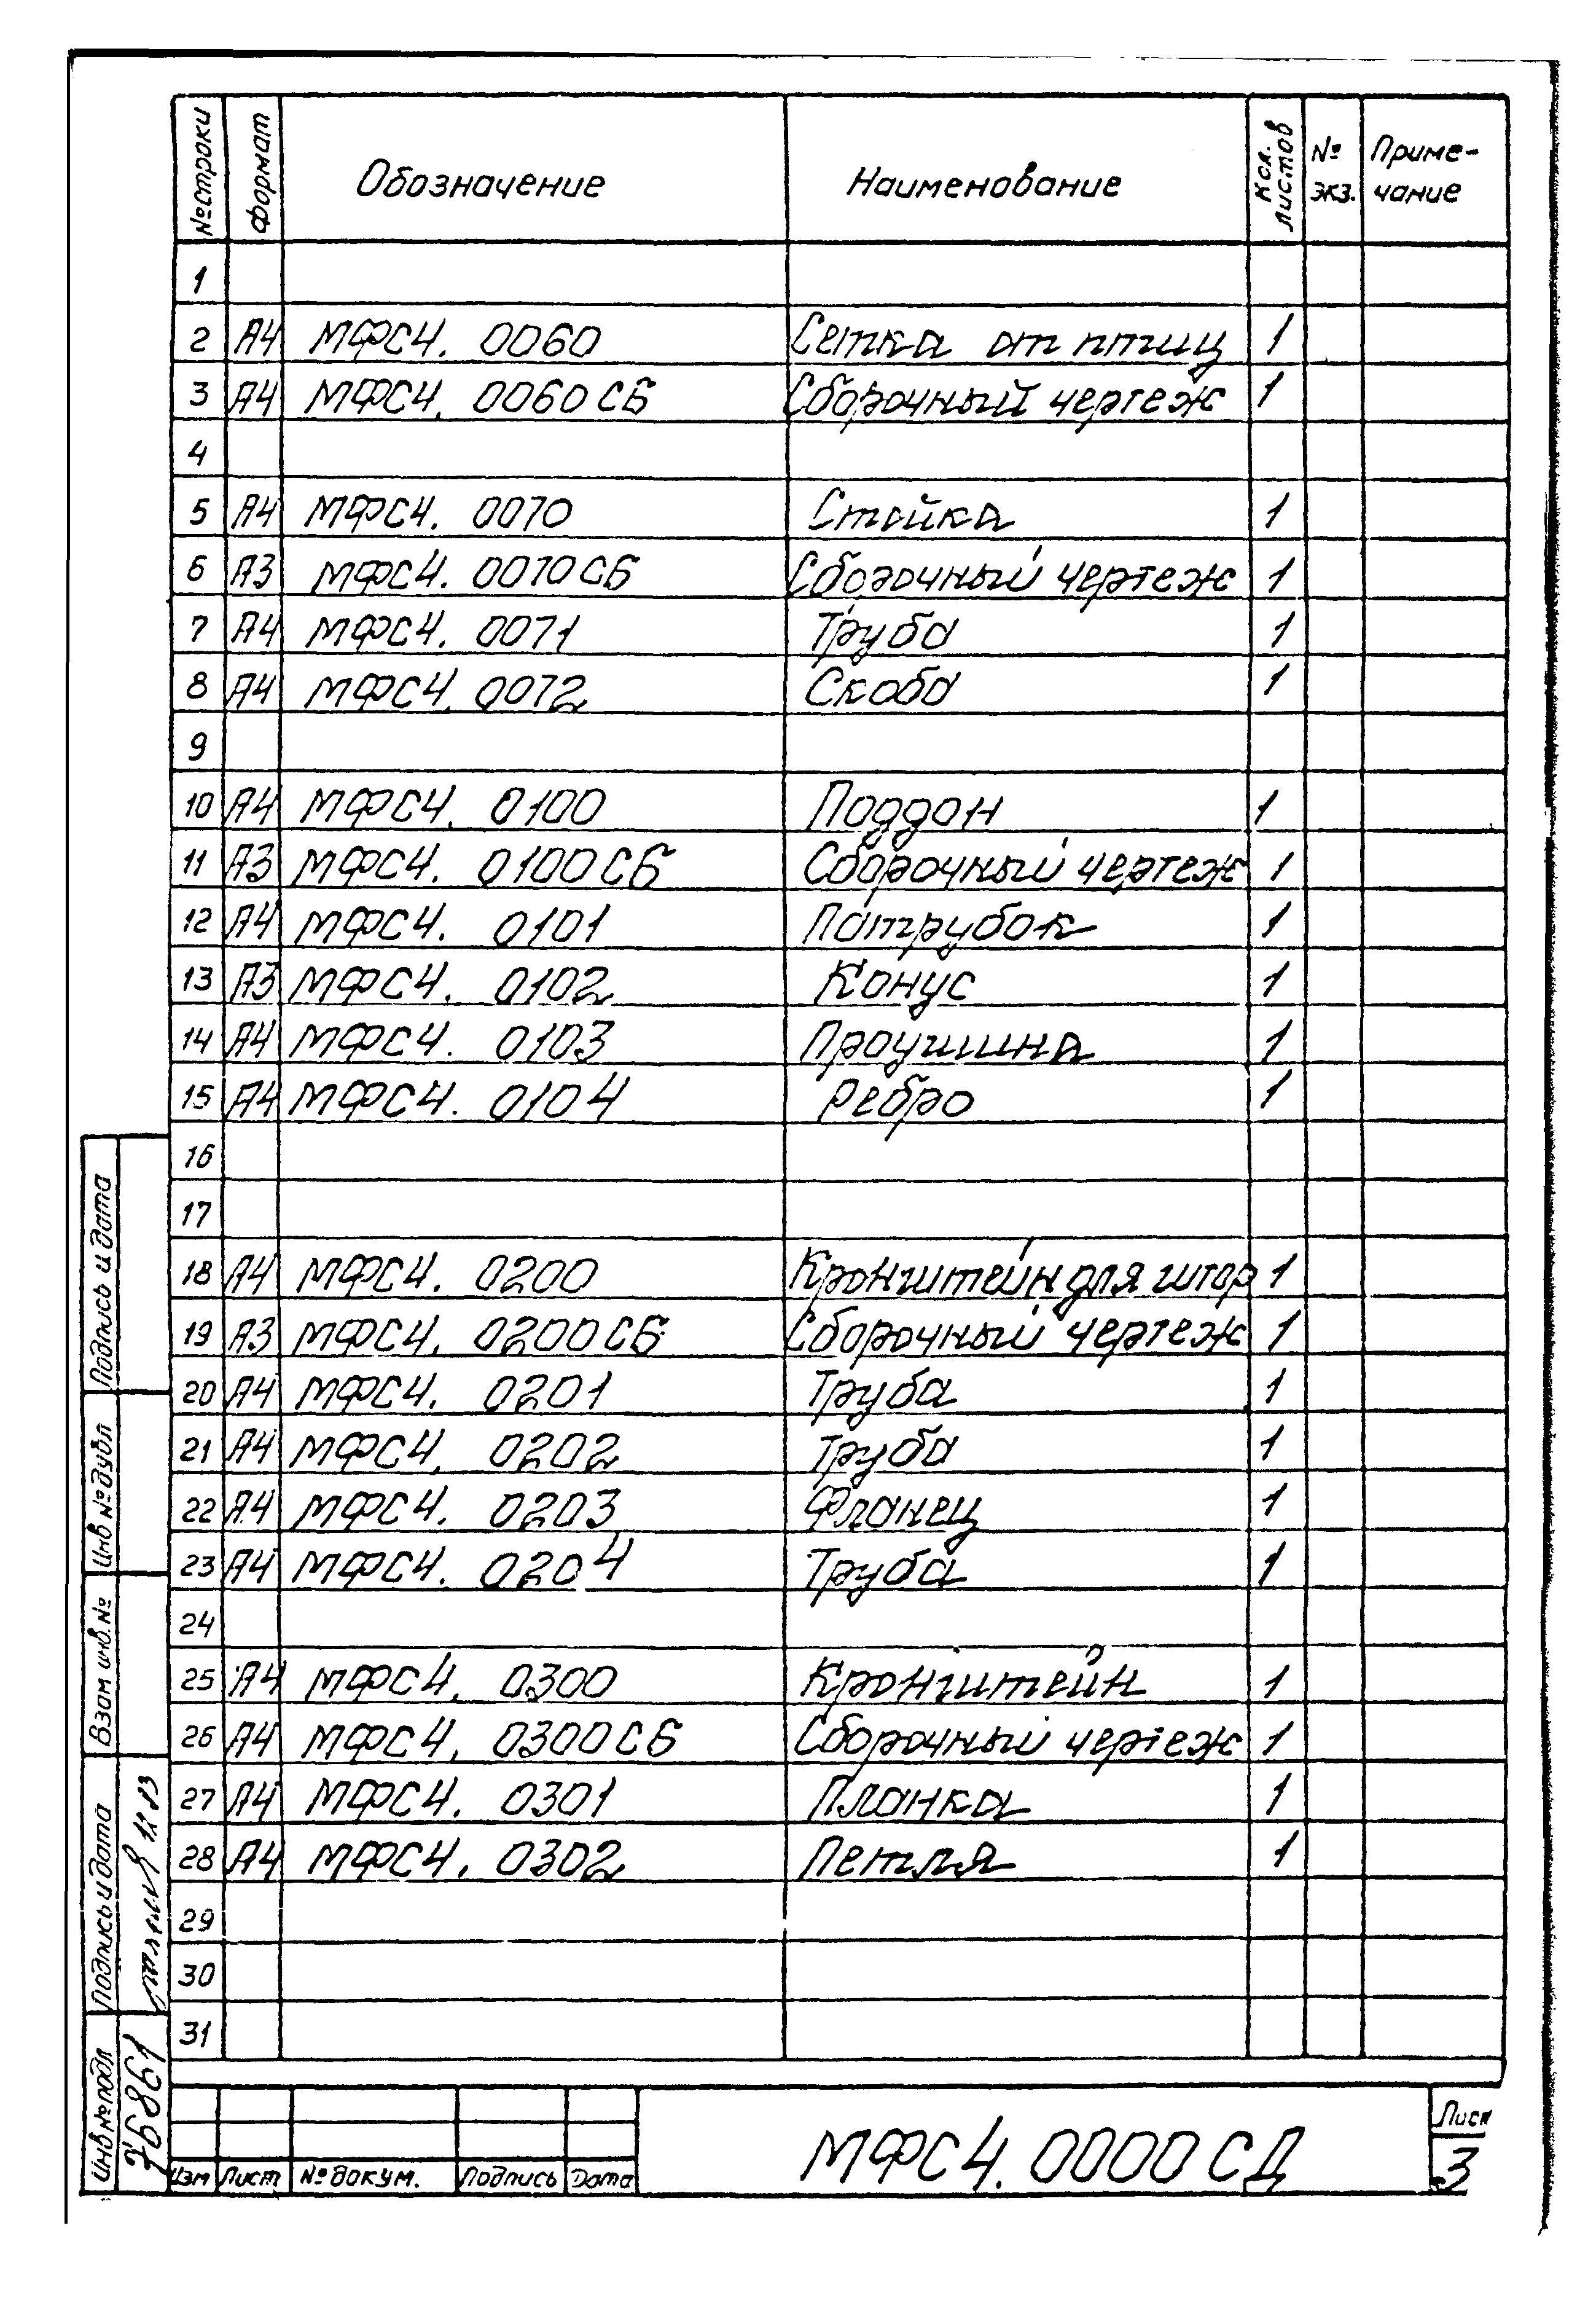 № строки Формат Обозначение Наименование Кол. листов № экз. Приме-
чание
1
2 А4 МФС4. 0060 Сетка от птиц 1
3 А4 МФС4. 0060 СБ Сборочный чертеж 1
4
5 А4 МФС4. 0070 Стойка 1
6 А3 МФС4. 0070 СБ Сборочный чертеж 1
7 А4 МФС4. 0071 Труба 1
8 А4 МФС4. 0072 Скоба 1
9
10 А4 МФС4. 0100 Поддон 1
11 А3 МФС4. 0100 СБ Сборочный чертеж 1
12 А4 МФС4. 0101 Патрубок 1
13 А3 МФС4. 0102 Конус 1
14 А4 МФС4. 0103 Проушина 1
15 А4 МФС4. 0104 Ребро 1
16
17
18 А4 МФС4. 0200 Кронштейн для штор 1
19 А3 МФС4. 0200 СБ Сборочный чертеж 1
20 А4 МФС4. 0201 Труба 1
21 А4 МФС4. 0202 Труба 1
22 А4 МФС4. 0203 Фланец 1
23 А4 МФС4. 0204 Труба 1
24
25 А4 МФС4. 0300 Кронштейн 1
26 А4 МФС4. 0300 СБ Сборочный чертеж 1
27 А4 МФС4. 0301 Планка 1
28 А4 МФС4. 0302 Петля 1
29
30
31
Подпись и дата
Инв № дубл
Взам инв. №
Подпись и дата
Инв № подл
Изм Лист № докум. Подпись Дата
МФС4. 0000 СД
Лист
3